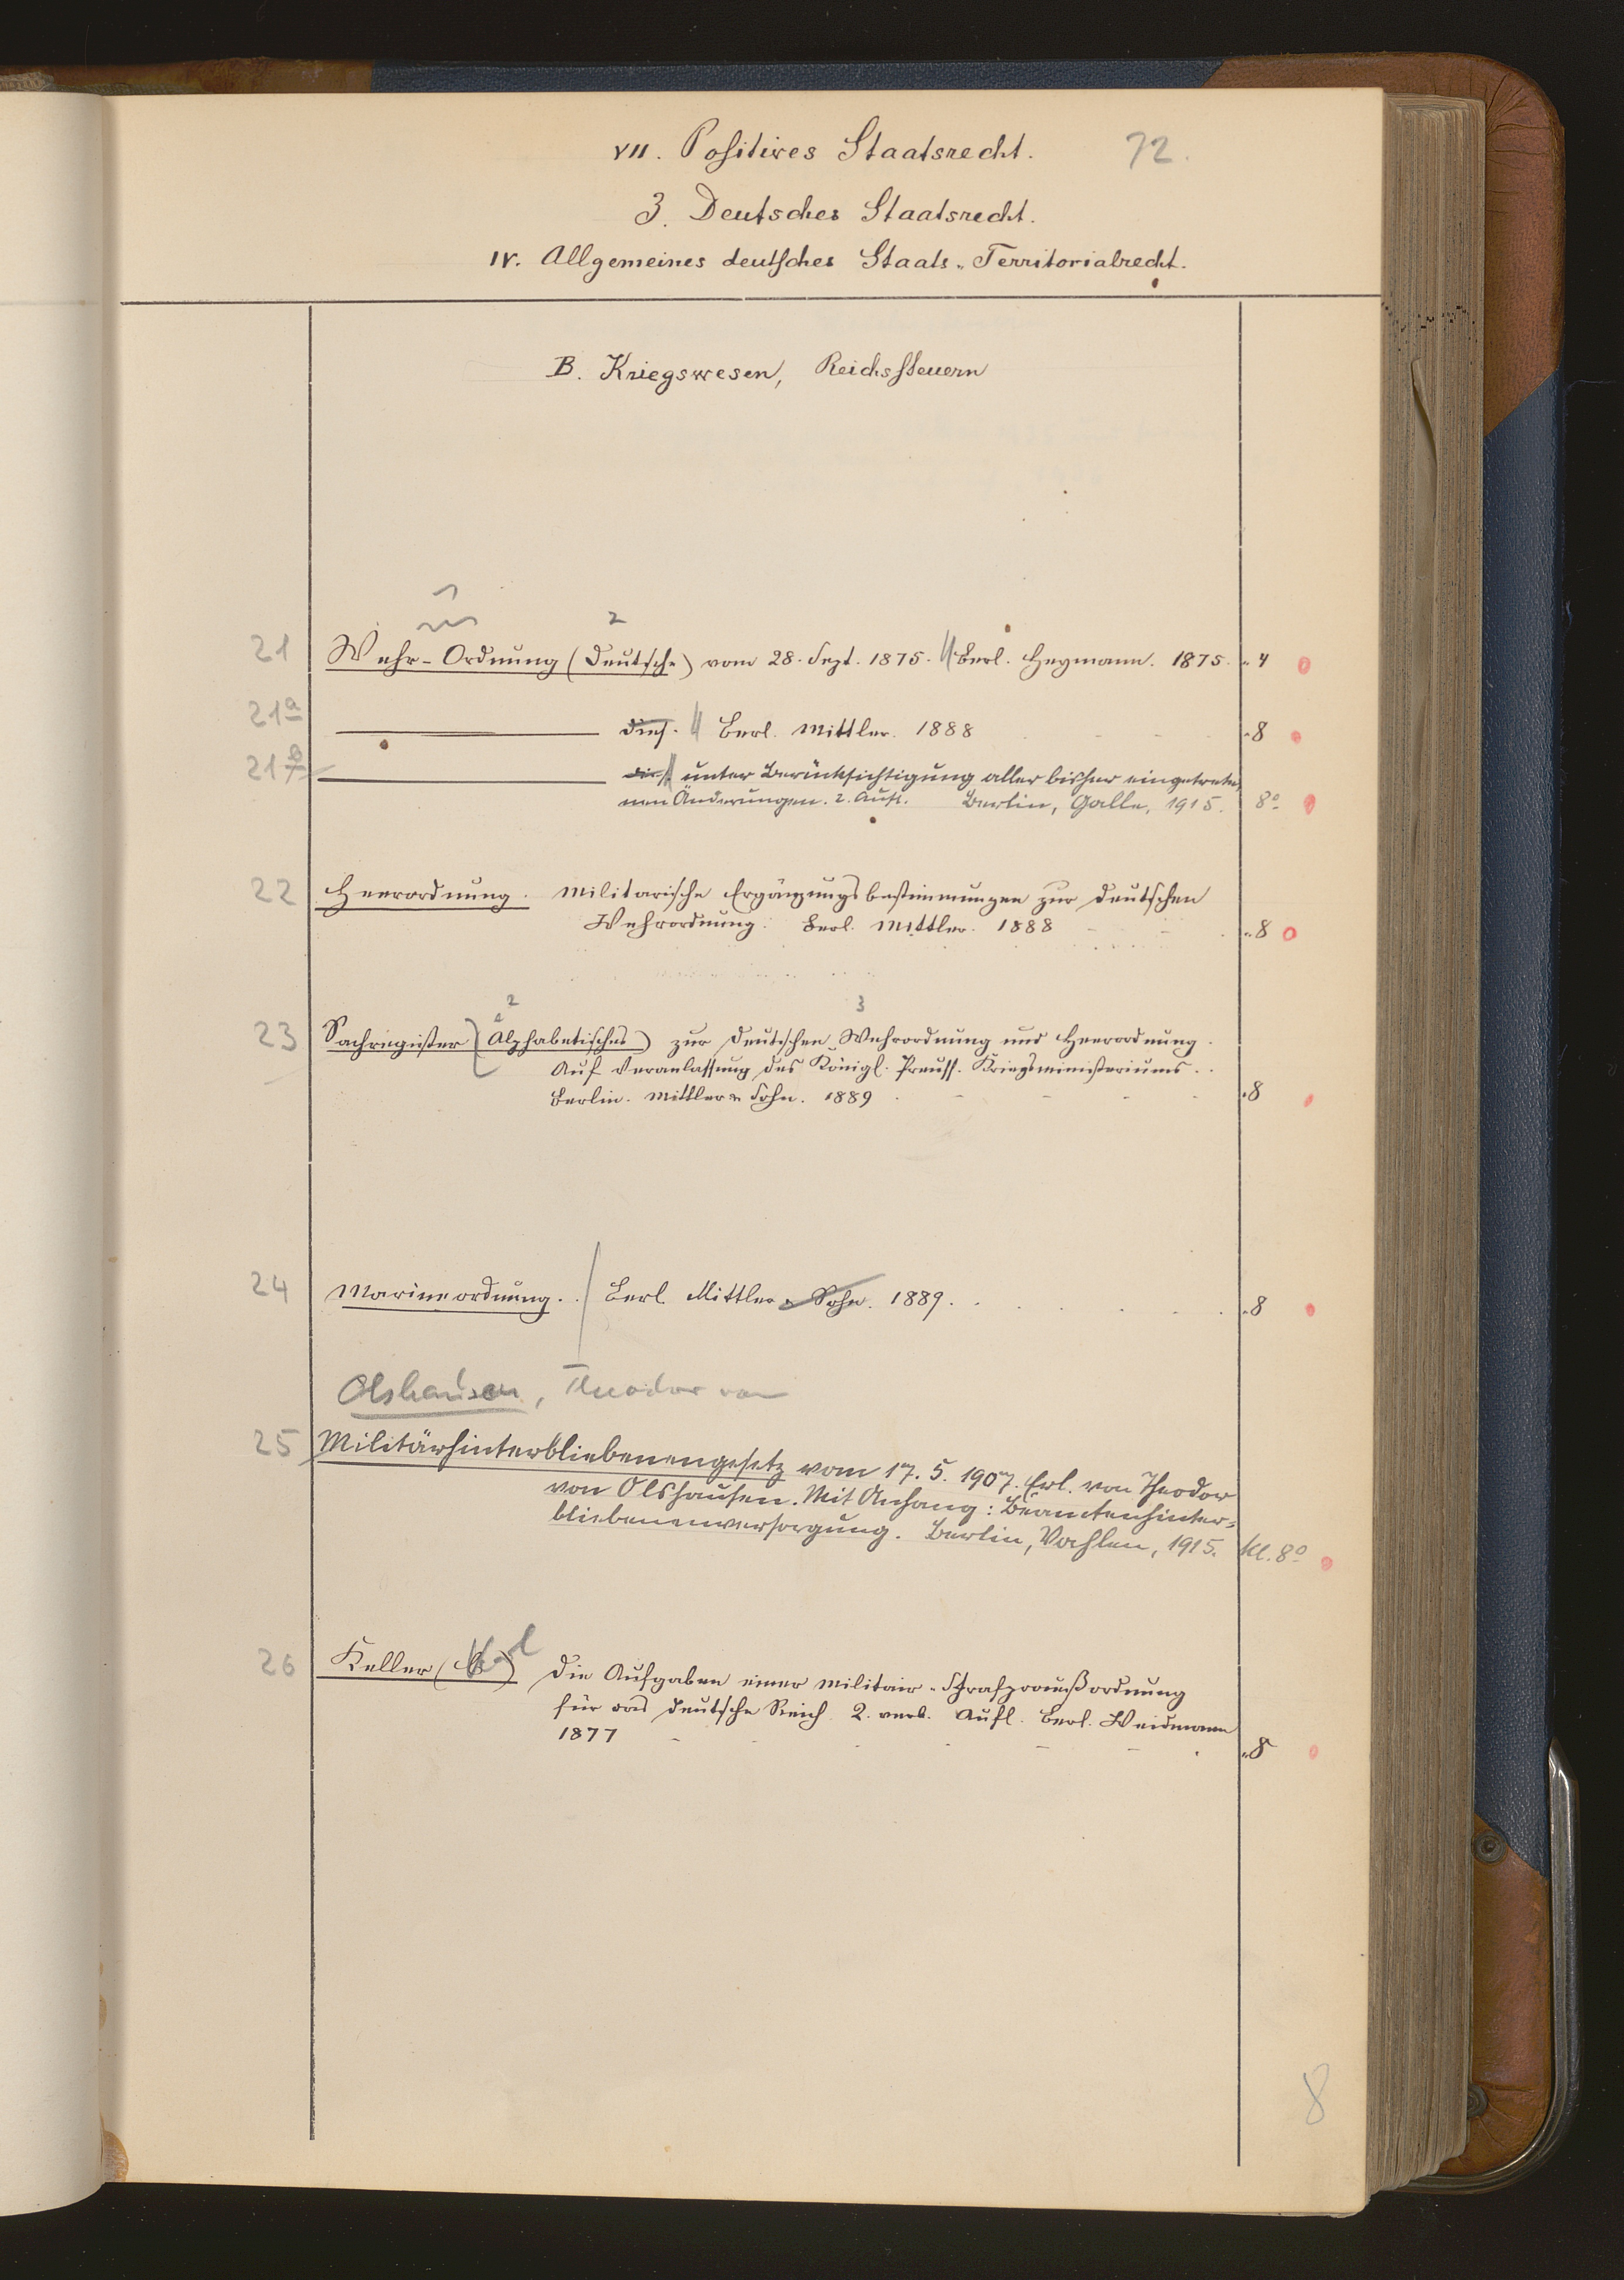 VII. Positives Staatsrecht. 72.
3. Deutsches Staatsrecht.
IV. Allgemeines deutsches Staats- Territorialrecht.
B. Kriegswesen, Reichssteuern
2
21 Wehr-Ordnung (Deutsche) vom 28. Sept. 1875. Berl. Heymann. 1875. 4
21a dies. Berl. Mittler. 1888 8
21b dies. unter Berücksichtigung aller bisher eingetrete-
nen Änderungen. 2. Aufl. Berlin, Galle, 1915. 8o
22 Heerordnung. Militarische Ergänzungsbestimmungen zur deutschen
Wehrordnung. Berl. Mittler. 1888 8
2 3
23 Sachregister (Alphabetisches) zur deutschen Wehrordnung und Heerordnung.
Auf Veranlassung des Königl. Preuss. Kriegsministeriums.
Berlin. Mittler u. Sohn. 1889 8
24 Marineordnung. Berl. Mittler u. Sohn. 1889. 8
Olshausen, Theodor von
25 Militärhinterbliebenengesetz vom 17. 5. 1907. Erl. von Theodor
von Olshausen. Mit Anhang: Beamtenhinter-
bliebenenversorgung. Berlin, Vahlen, 1915. kl. 8o
26 Keller Die Aufgaben einer Militair-Strafprozeßordnung
für das deutsche Reich. 2. verb. Aufl. Berl. Weidmann
1877 8
8